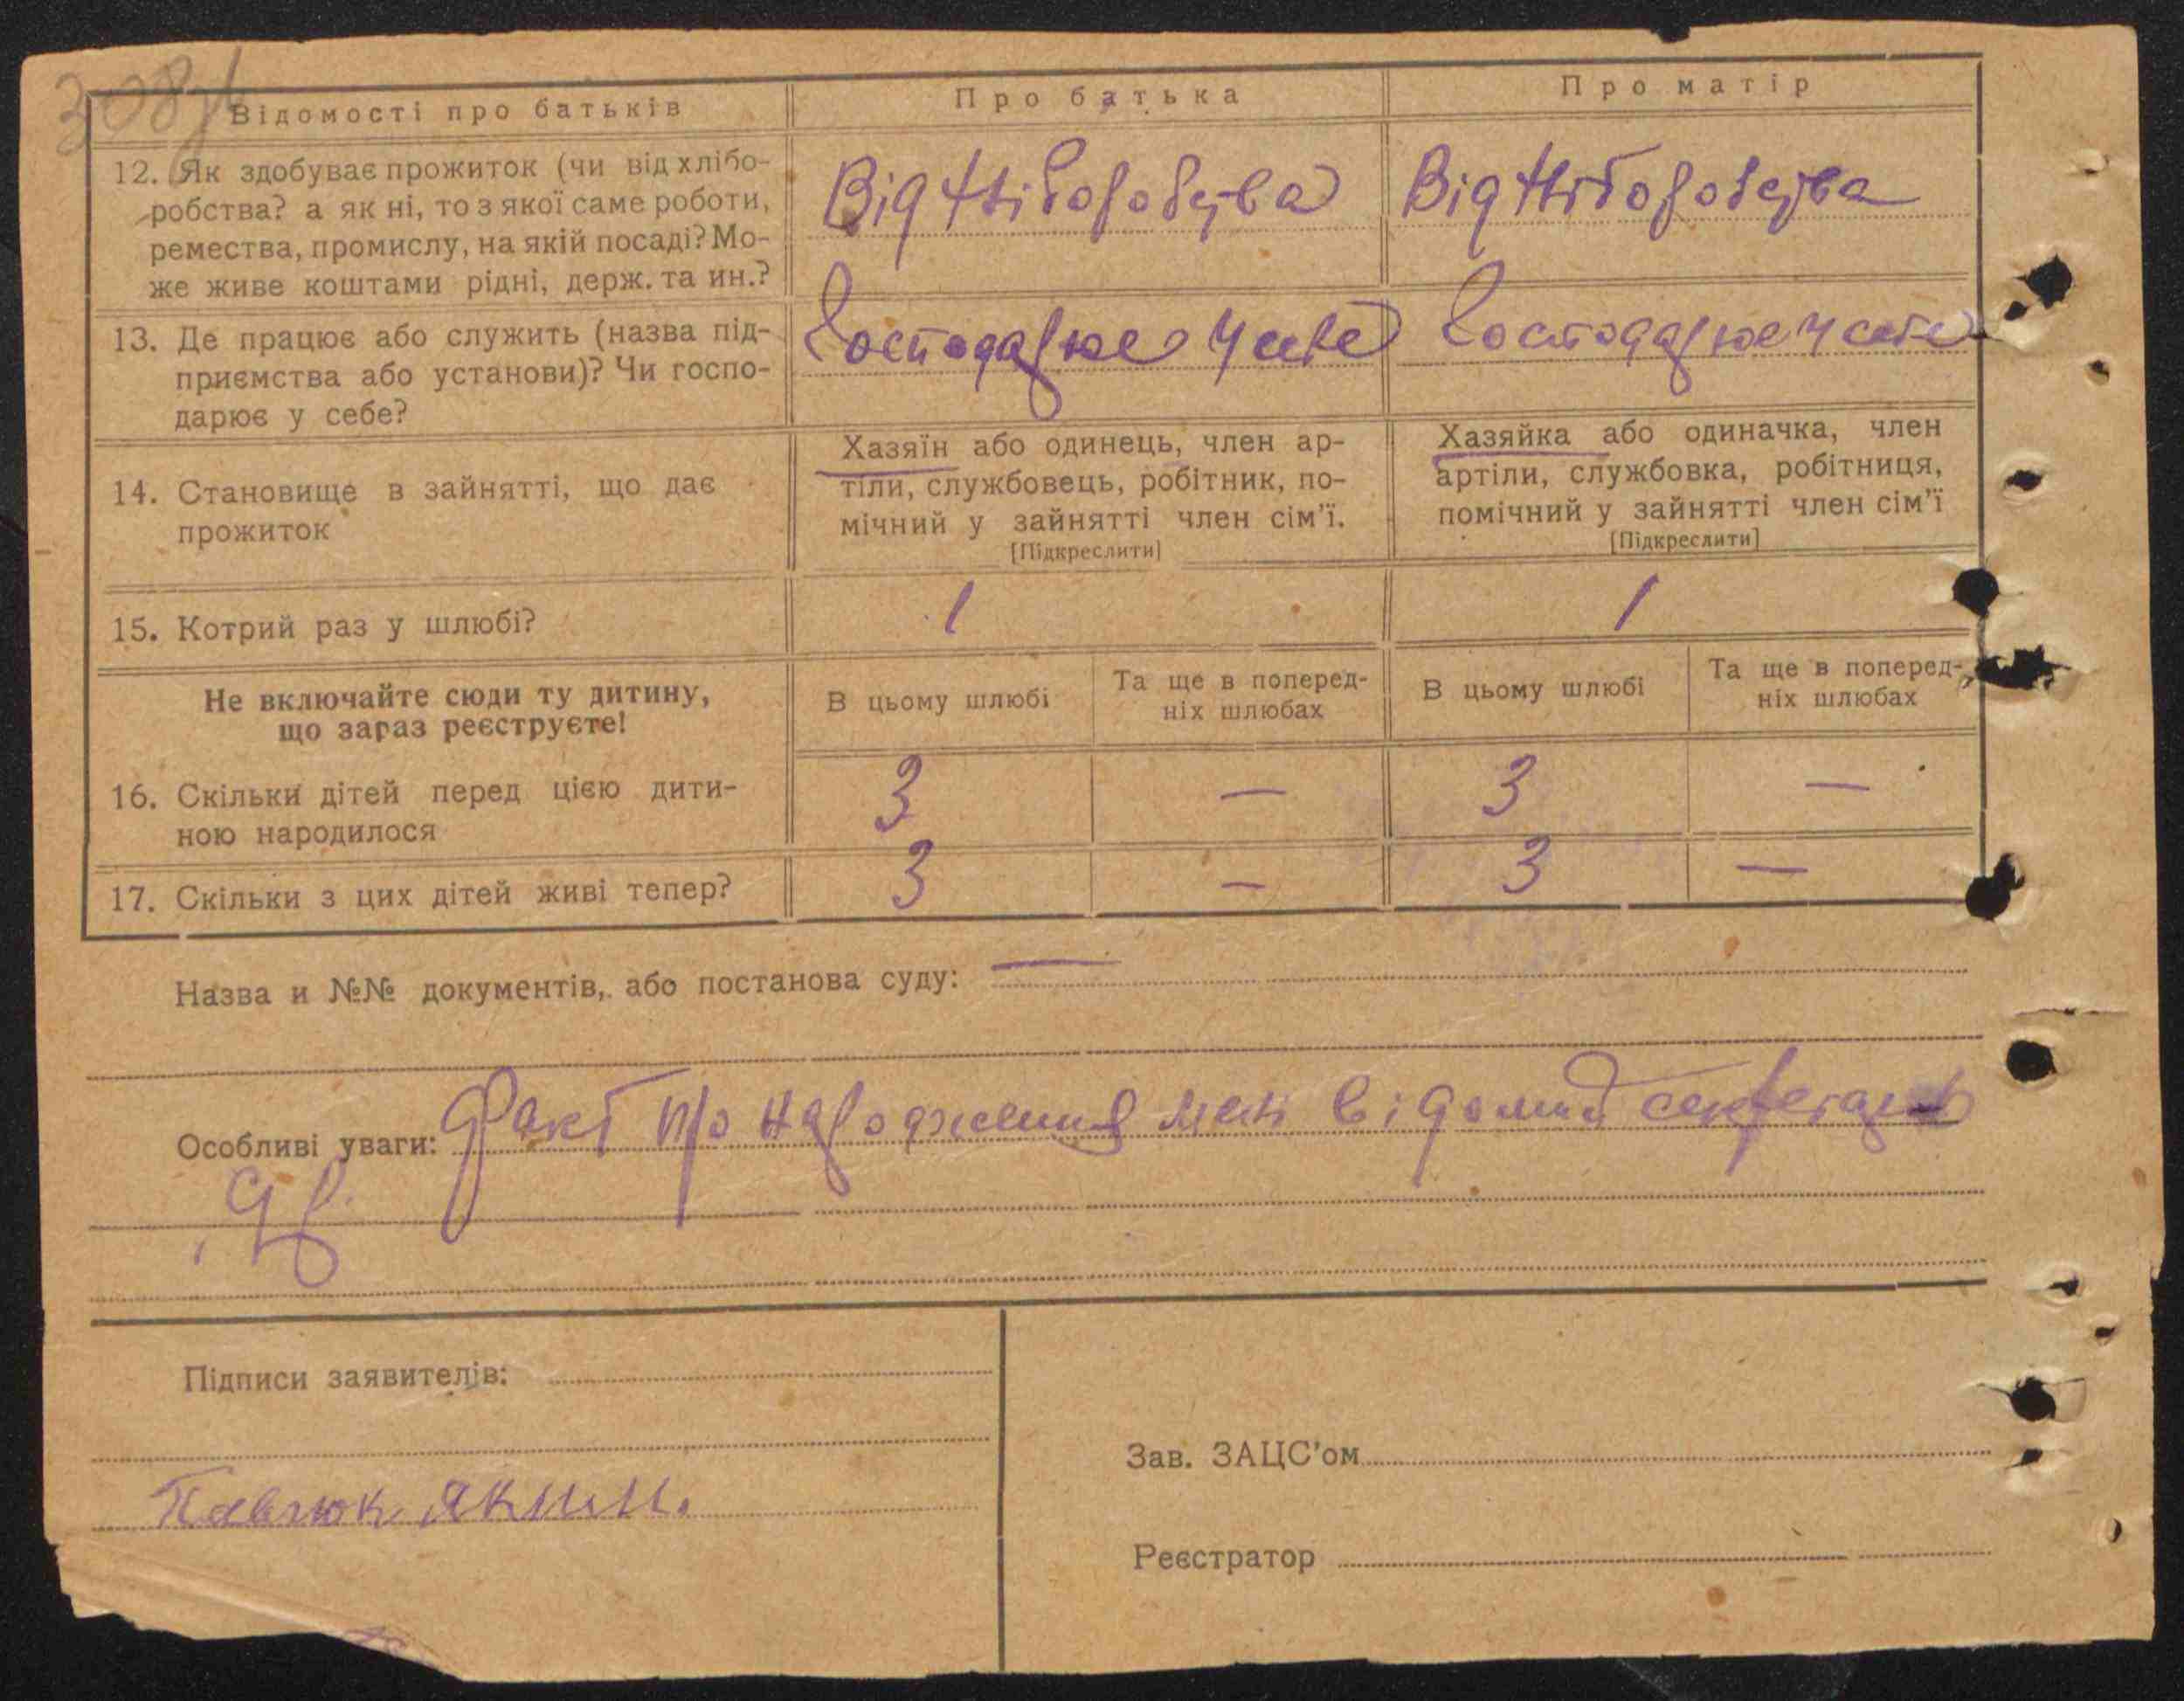 308
Відомості про батьків
Про батька
Про матір
12. Як здобуває прожиток (чи від хлібо-
робства? а як ні, то з якої саме роботи,
ремества, промислу, на якій посаді? Мо-
же живе коштами рідні, держ. та ин.?
Від хліборобства
Від хліборобства
13. Де працює або служить (назва під-
приємства або установи)? Чи госпо-
дарює у себе?
Господарює у себе
Господарює у себе
14. Становище в зайнятті, що дає
прожиток
Хазяїн або одинець, член ар-
тіли, службовець, робітник, по-
мічний у зайнятті член сім'ї.
[Підкреслити]
Хазяйка або одиначка, член
артіли, службовка, робітниця,
помічний у зайнятті член сім'ї
[Підкреслити]
15. Котрий раз у шлюбі?
1
1
Не включайте сюди ту дитину,
що зараз реєструєте!
В цьому шлюбі
Та ще в поперед-
ніх шлюбах
В цьому шлюбі
Та ще в поперед-
ніх шлюбах
16. Скільки дітей перед цією дити-
ною народилося
3 — 3 —
17. Скільки з цих дітей живі тепер?
3 — 3 —
Назва и №№ документів, або постанова суду: —
Особливі уваги: Факт про народження мені відомий секретарь
Підписи заявителів:
Павлюк Яким.
Зав. ЗАЦС'ом
Реєстратор